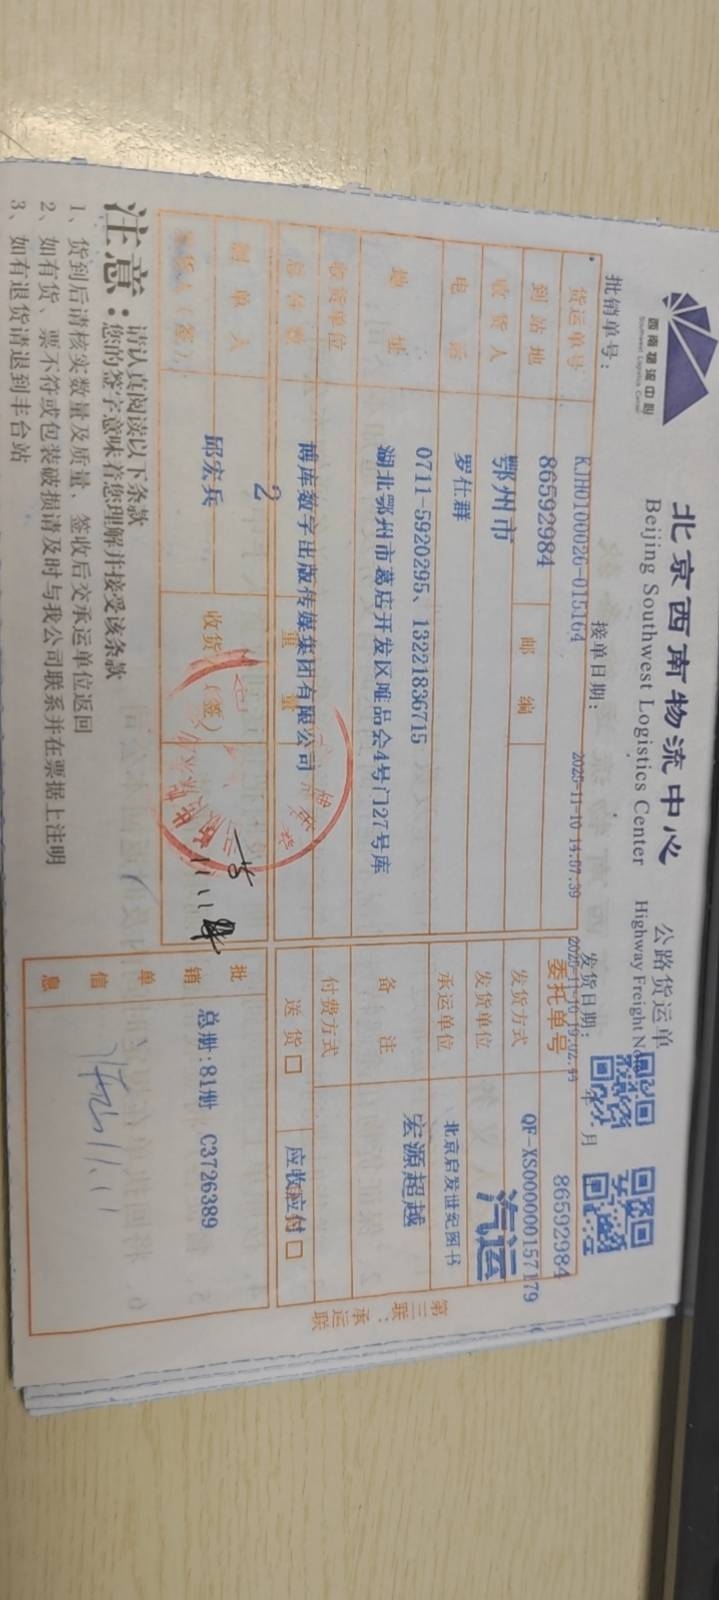 西南物流中心
Southwest Logistics Center
北京西南物流中心
Beijing Southwest Logistics Center
公路货运单
Highway Freight No
批销单号：
接单日期：
2025-11-10 14:07:39
发货日期：
年 月
货运单号
KJH0100026-015164
委托单号
86592984
到站地
86592984
邮 编
发货方式
QF-XS000000157179
收货人
鄂州市
发货单位
汽运
电 话
罗仕群
承运单位
北京启发世纪图书
地 址
0711-5920295、13221836715
湖北鄂州市葛店开发区唯品会4号门27号库
备 注
宏源超越
收货单位
付费方式
总件数
博库数字出版传媒集团有限公司
重 量
送 货 □
应收应付 □
制 单 人
2
发货人（签）
邱宏兵
收货 （签）
批销单信息
总册:81册 C3726389
第三联：承运联
注意：
请认真阅读以下条款
您的签字意味着您理解并接受该条款
1、货到后请核实数量及质量、签收后交承运单位返回
2、如有货、票不符或包装破损请及时与我公司联系并在票据上注明
3、如有退货请退到丰台站